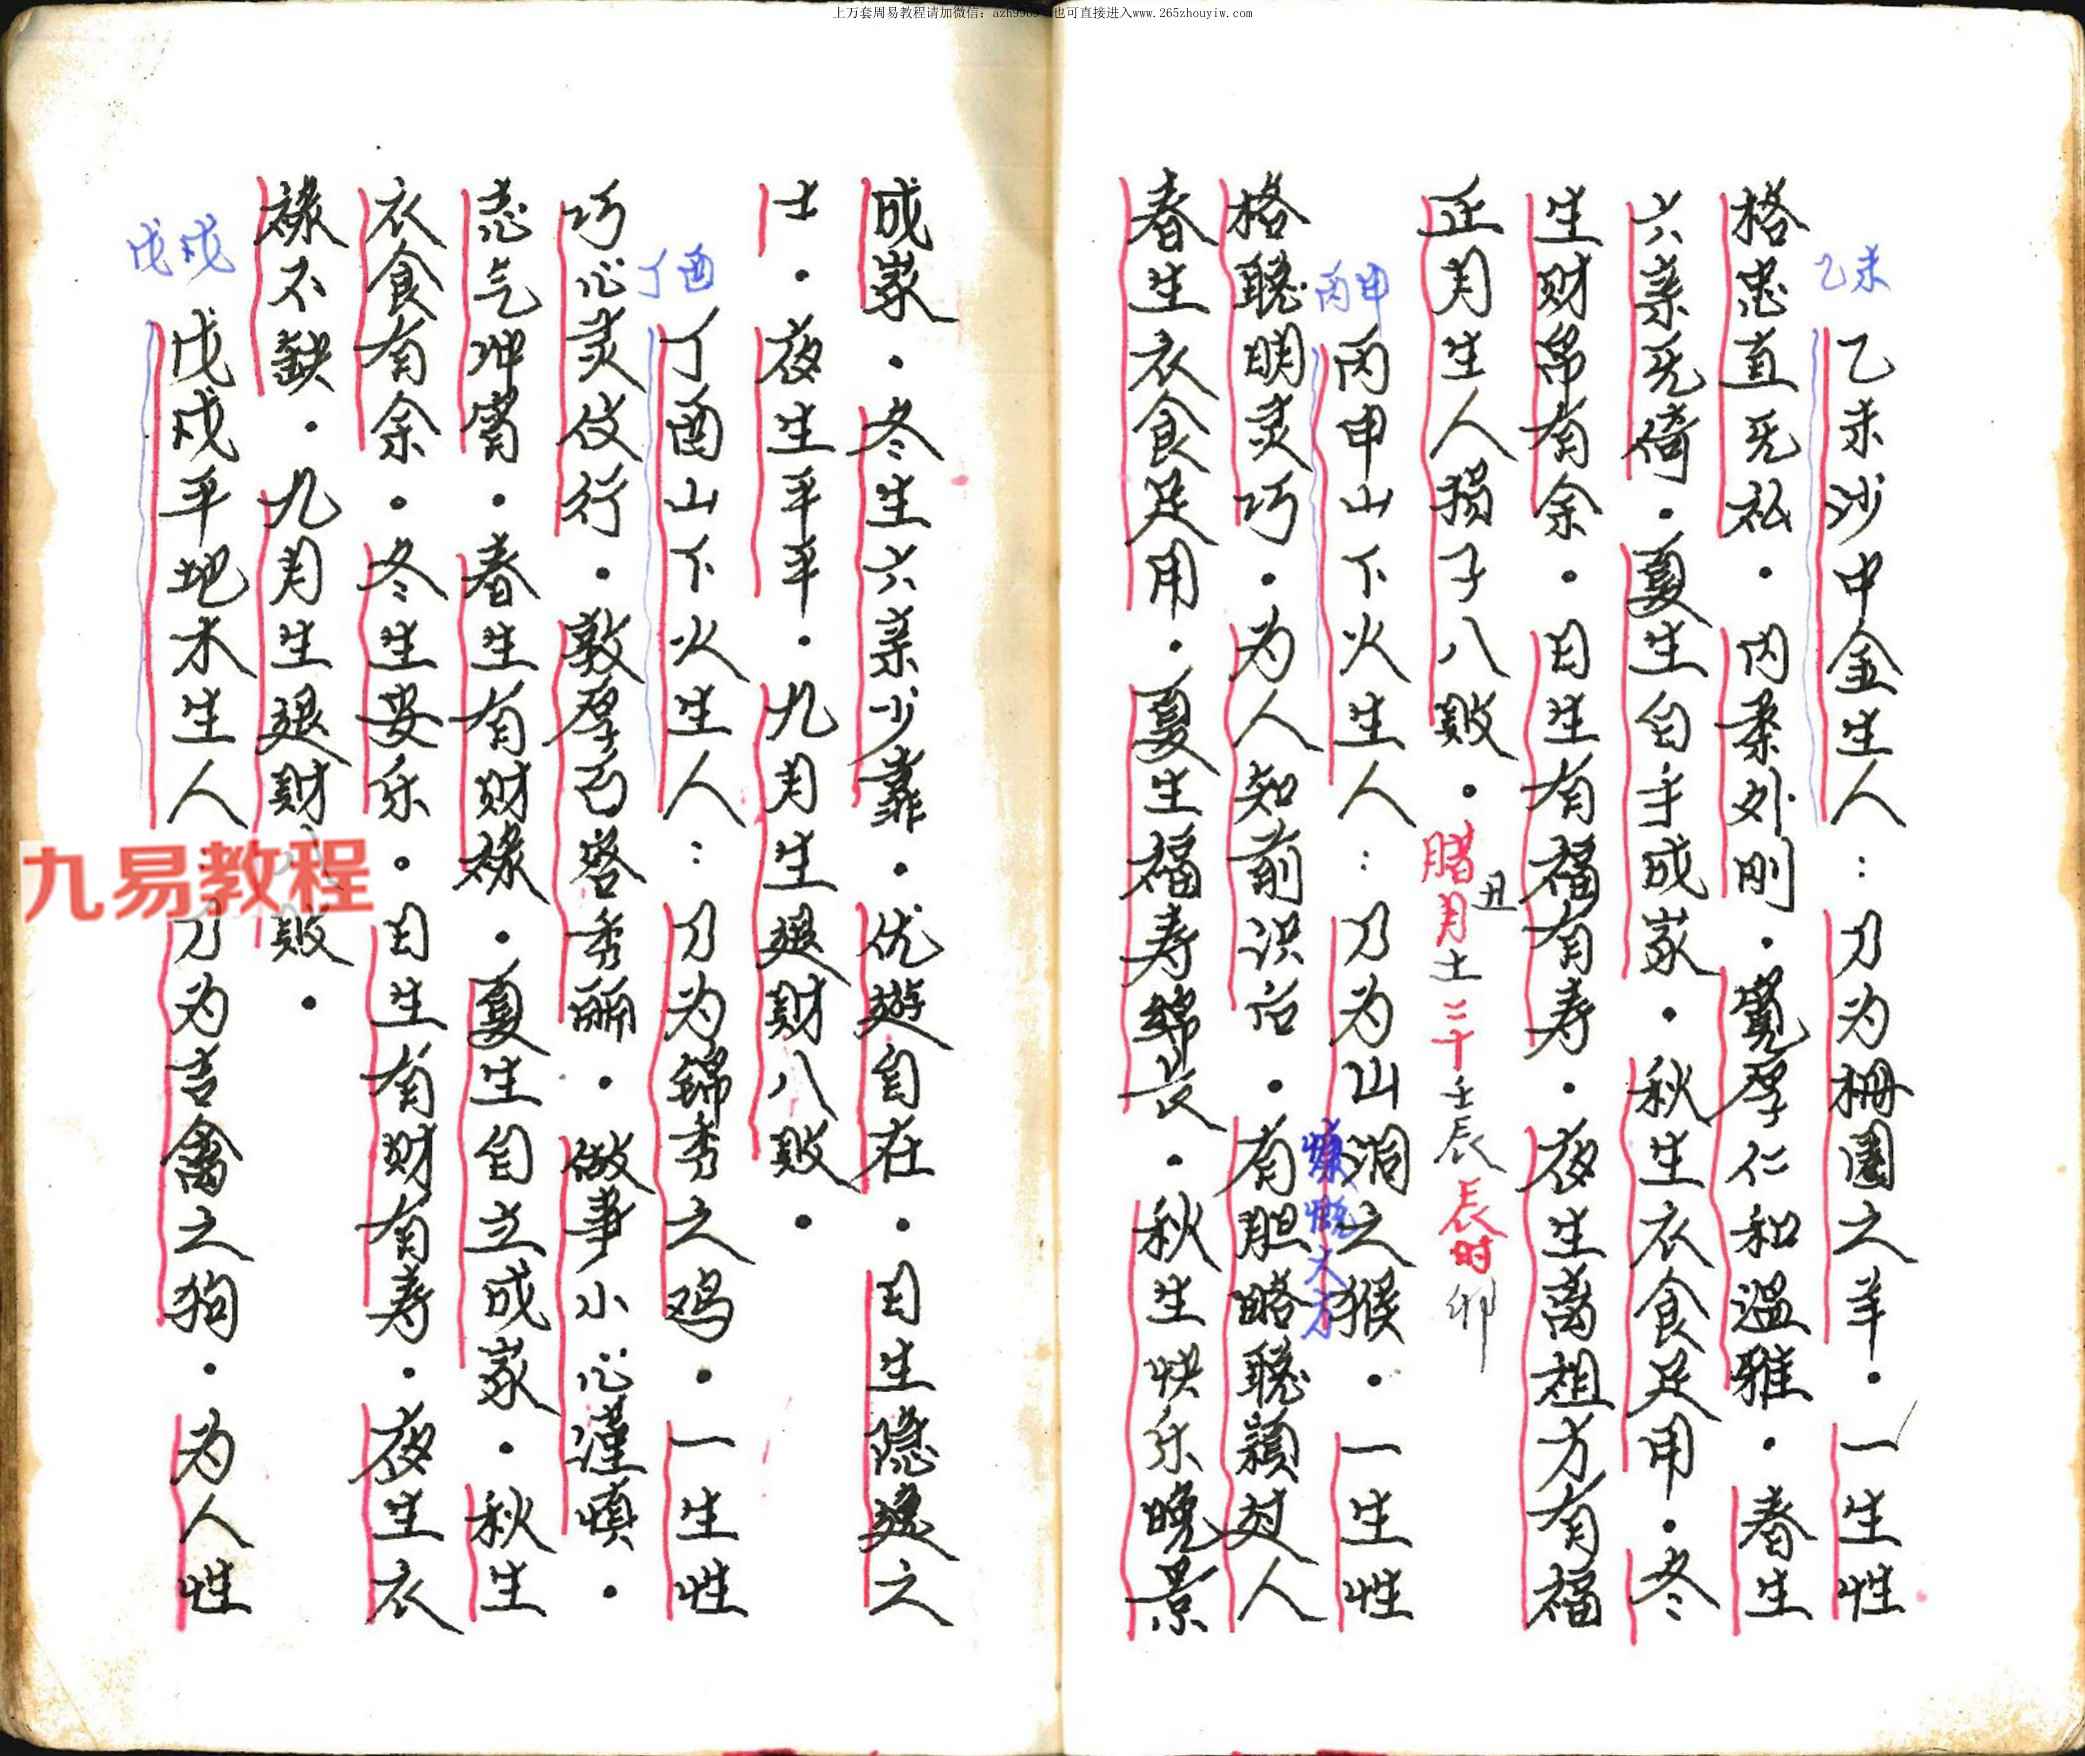 上万套周易教程请加微信：azh998
也可直接进入www.265zhouyiw.com
乙未
乙未沙中金生人：乃为栅圈之羊．一生性
格忠直无私．内柔外刚．宽厚仁和温雅．春生
六亲无倚．夏生白手成家．秋生衣食足用．冬
生财帛有余．日生有福有寿．夜生离祖方有福
正月生人损子八败．
腊月土三十壬辰辰时卯
丑
丙申
丙申山下火生人：乃为山洞之猴．一生性
慷慨大方
格聪明灵巧．为人知前识后．有胆略聪颖过人
春生衣食足用．夏生福寿绵长．秋生快乐晚景
成家．冬生六亲少靠．优游自在．日生隐逸之
士．夜生平平．九月生退财八败．
丁酉
丁酉山下火生人：乃为锦秀之鸡．一生性
巧心灵伎行．敦厚己容秀丽．做事小心谨慎．
志气冲霄．春生有财禄．夏生自立成家．秋生
衣食有余．冬生安乐．日生有财有寿．夜生衣
禄不缺．九月生退财败．
戊戌
戊戌平地木生人 乃为吉禽之狗．为人性
九易教程